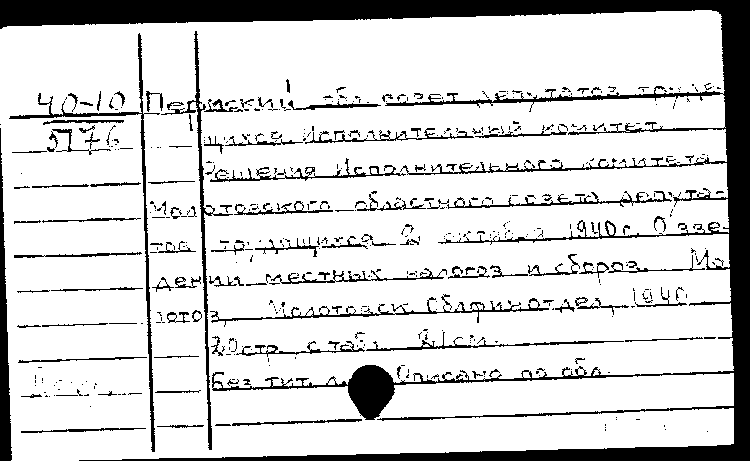 40-10
5176
Пермский обл. совет депутатов трудя-
щихся. Исполнительный комитет.
Решения Исполнительного комитета
Молотовского областного совета депута-
тов трудящихся 2 октября 1940 г. О вве-
дении местных налогов и сборов. Мо-
лотов, Молотовск. Облфинотдел, 1940
20 стр. с табл. 21 см.
Без тит. л. Описано по обл.